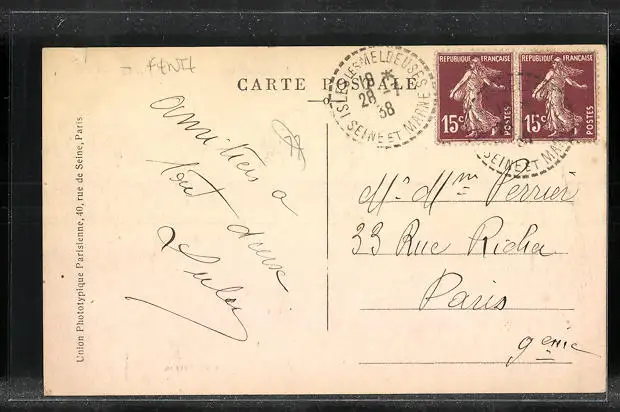 CARTE POSTALE
ISLES-LES-MELDEUSES
18 *
28 -7
38
SEINE ET MARNE
REPUBLIQUE FRANÇAISE
15c
POSTES
REPUBLIQUE FRANÇAISE
15c
POSTES
SEINE ET MARNE
Union Phototypique Parisienne, 40, rue de Seine, Paris
amitiés a
tout deux
Mr Mme Perrier
33 Rue Riche
Paris
9eme